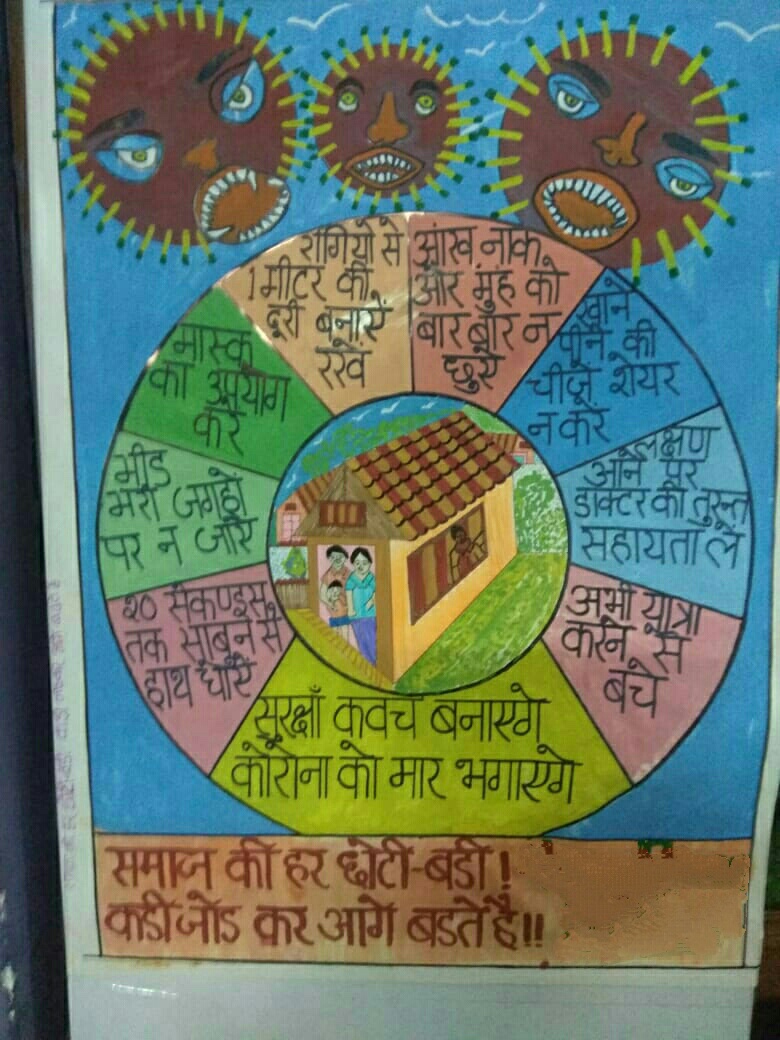 रोगियों से
1 मीटर की
दूरी बनायें
रखें
आंख नाक
और मुंह को
बार बार न
छुयें
खाने
पीने की
चीजें शेयर
न करें
लक्षण
आने पर
डाक्टर की तुरन्त
सहायता लें
अभी यात्रा
करने से
बचे
सुरक्षाँ कवच बनाएगे
कोरोना को मार भगाएगे
२० सेकण्डस
तक साबुन से
हाथ धोयें
भीड
भरी जगहों
पर न जायें
मास्क
का उपयोग
करें
समाज की हर छोटी-बडी !
कडी जोड कर आगे बडते है !!